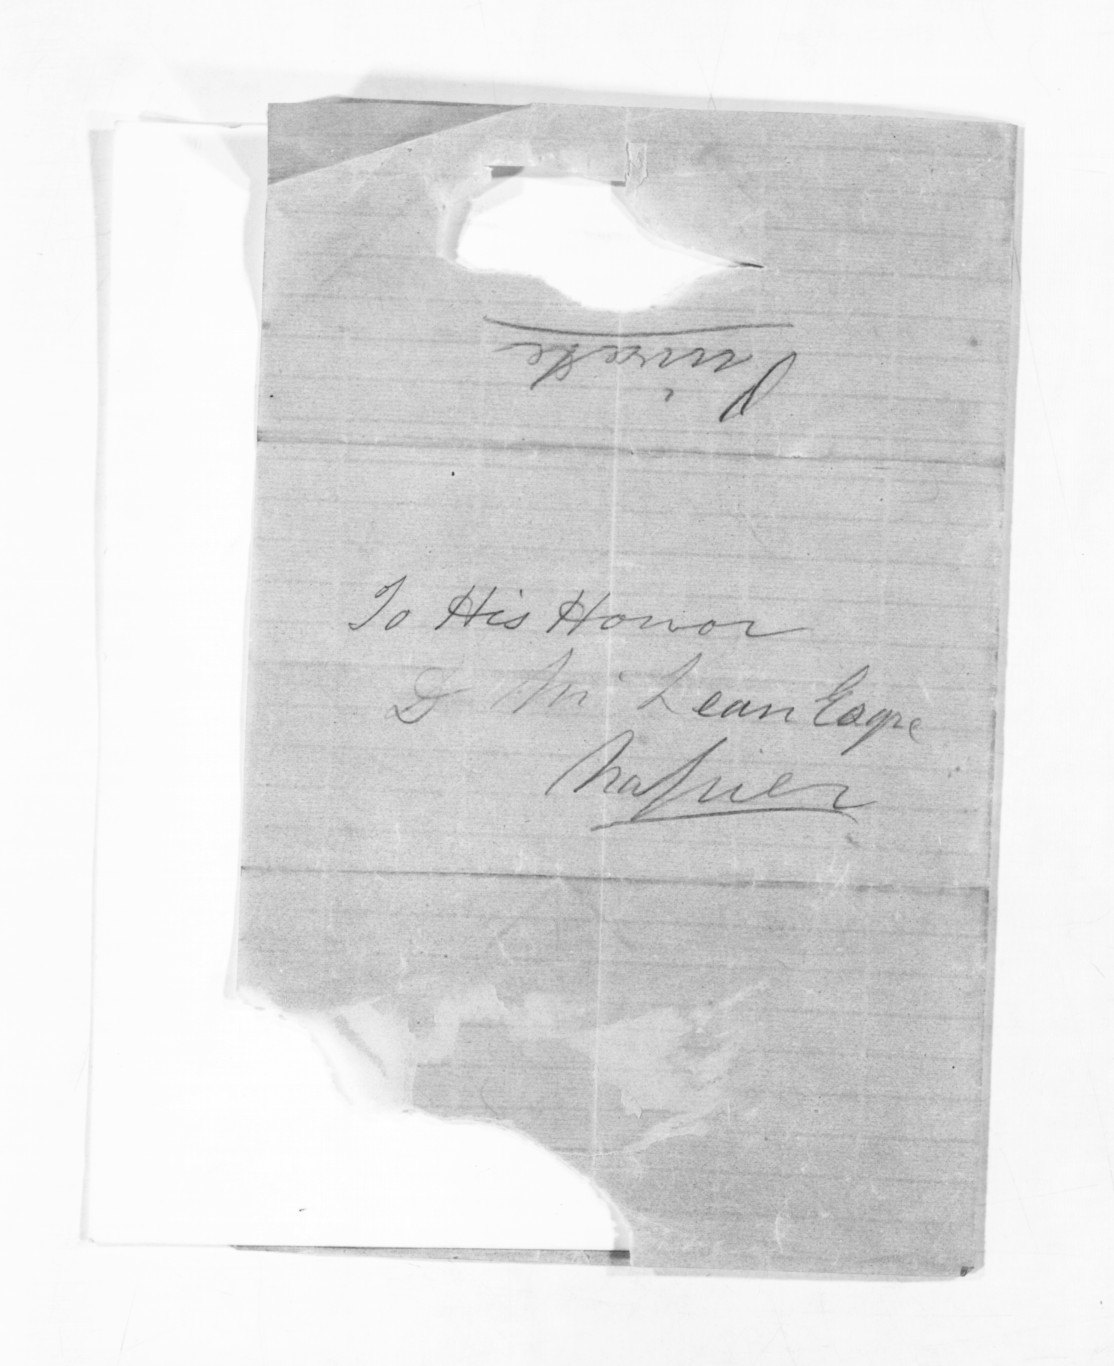 Private
To His Honor
D Mc Lean Esqre
Napier